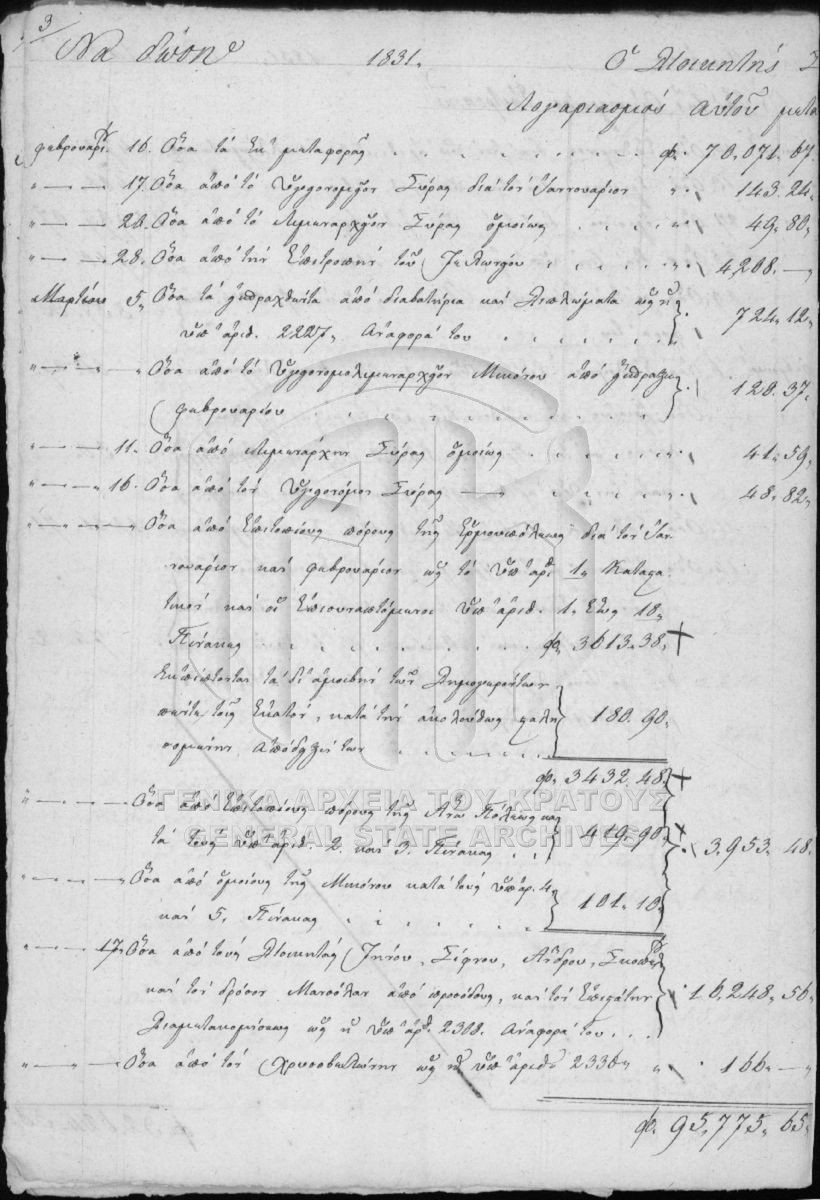 3
Να δώση 1831, Ὁ Διοικητής Σ
Λογαριασμός αὐτοῦ μετα
φεβρουαρίου 16. Ὅσα τά ἐκ μεταφορᾶς φ. 70,071. 67.
" — — 17. Ὅσα ἀπό τό Ὑγειονομεῖον Σύρας διά τόν Ἰαννουάριον " 143. 24.
" — — 26. Ὅσα ἀπό τό Λιμεναρχεῖον Σύρας ὁμοίως 49. 80,
" — — 28. Ὅσα ἀπό τήν Ἐπιτροπήν τοῦ 4,208. —
Μαρτίου 5, Ὅσα τά εἰσπραχθέντα ἀπό διαβατήρια καί Διπλώματα ὡς ἡ
ὑπ' ἀριθ. 2227, Ἀναφορά του 724. 12,
" — " — " Ὅσα ἀπό τό Ὑγειονομολιμεναρχεῖον Μικόνου ἀπό εἰσπράξεις
φεβρουαρίου 128. 37,
" — — 11. Ὅσα ἀπό Λιμενάρχην Σύρας ὁμοίως 41. 59,
" — — 16. Ὅσα ἀπό τόν Ὑγειονόμον Σύρας — 48. 82,
" — — — Ὅσα ἀπό Ἐπιτοπίους πόρους τῆς Ἑρμουπόλεως διά τόν Ἰαν-
νουάριον καί φεβρουάριον ὡς τό ὑπ' ἀρ. 1, Καταστα-
τικόν καί οἱ Ἐπισυναπτόμενοι ὑπ' ἀριθ. 1, ἕως 18,
Πίνακες φ. 3613. 38,
Ἐκπίπτονται τά δι' ἀμοιβήν τῶν Δημογερόντων
πέντε τοῖς ἑκατόν, κατά τήν ἀκολούθως
ἀπόδειξίν των 180. 90,
φ. 3432. 48,
" — — — Ὅσα ἀπό Ἐπιτοπίους πόρους τῆς Ἄνω Πόλεως κα-
τά τούς ὑπ' ἀριθ. 2. καί 3. Πίνακας 419. 90, 3,953. 48.
" — — — Ὅσα ἀπό ὁμοίους τῆς Μικόνου κατά τούς ὑπ' ἀρ. 4.
καί 5, Πίνακας 101. 10,
" — — 17, Ὅσα ἀπό τούς Διοικητάς Τήνου, Σίφνου, Ἄνδρου, Σκοπέλ
καί τόν δρόσον Μανσόλαν ἀπό προσόδους, καί τόν Ἐπιστάτην
Διαμετακομίσεως ὡς ἡ ὑπ' ἀρ. 2308. Ἀναφορά του 16,248. 56,
" — " — Ὅσα ἀπό τόν Χρυσοβελώνην ὡς ἡ ὑπ' ἀριθ. 2336, " 166. — "
φ. 95,775. 65,
ΓΕΝΙΚΑ ΑΡΧΕΙΑ ΤΟΥ ΚΡΑΤΟΥΣ
GENERAL STATE ARCHIVES